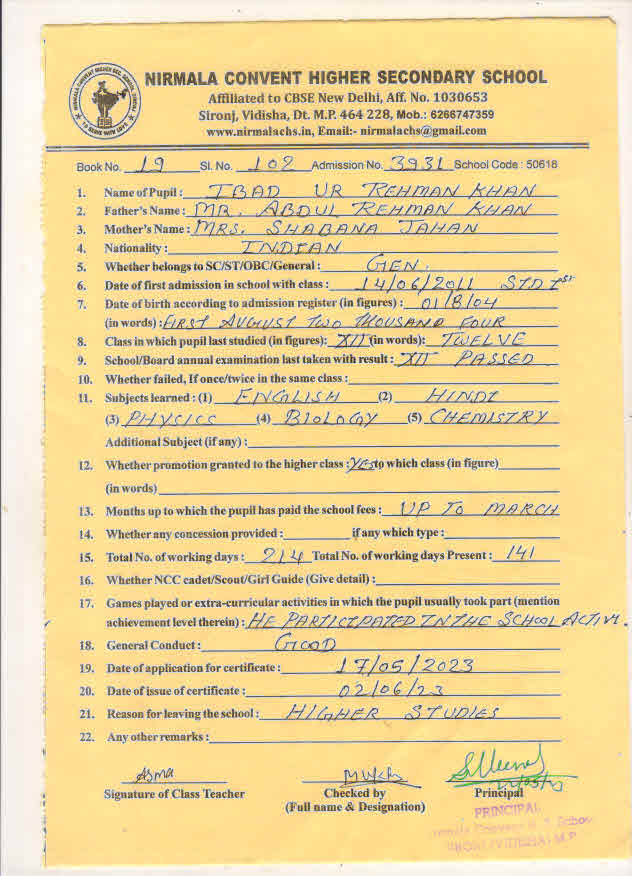 NIRMALA CONVENT HIGHER SECONDARY SCHOOL
Affiliated to CBSE New Delhi, Aff. No. 1030653
Sironj, Vidisha, Dt. M.P. 464 228, Mob.: 6266747359
www.nirmalachs.in, Email:- nirmalachs@gmail.com
Book No. 19 Sl. No. 102 Admission No. 3931 School Code : 50618
1. Name of Pupil : IBAD UR REHMAN KHAN
2. Father's Name : MR. ABDUL REHMAN KHAN
3. Mother's Name : MRS. SHABANA JAHAN
4. Nationality : INDIAN
5. Whether belongs to SC/ST/OBC/General : GEN.
6. Date of first admission in school with class : 14/06/2011 STD Ist
7. Date of birth according to admission register (in figures) : 01/8/04
(in words) : FIRST AUGUST TWO THOUSAND FOUR
8. Class in which pupil last studied (in figures): XII (in words): TWELVE
9. School/Board annual examination last taken with result : XII PASSED
10. Whether failed, If once/twice in the same class :
11. Subjects learned : (1) ENGLISH (2) HINDI
(3) PHYSICS (4) BIOLOGY (5) CHEMISTRY
Additional Subject (if any) :
12. Whether promotion granted to the higher class : YES to which class (in figure)
(in words)
13. Months up to which the pupil has paid the school fees : UP TO MARCH
14. Whether any concession provided : if any which type :
15. Total No. of working days : 214 Total No. of working days Present : 141
16. Whether NCC cadet/Scout/Girl Guide (Give detail) :
17. Games played or extra-curricular activities in which the pupil usually took part (mention
achievement level therein) : HE PARTICIPATED IN THE SCHOOL ACTIVI.
18. General Conduct : GOOD
19. Date of application for certificate : 17/05/2023
20. Date of issue of certificate : 02/06/23
21. Reason for leaving the school : HIGHER STUDIES
22. Any other remarks :
Asma
Signature of Class Teacher Checked by Principal
(Full name & Designation)
PRINCIPAL